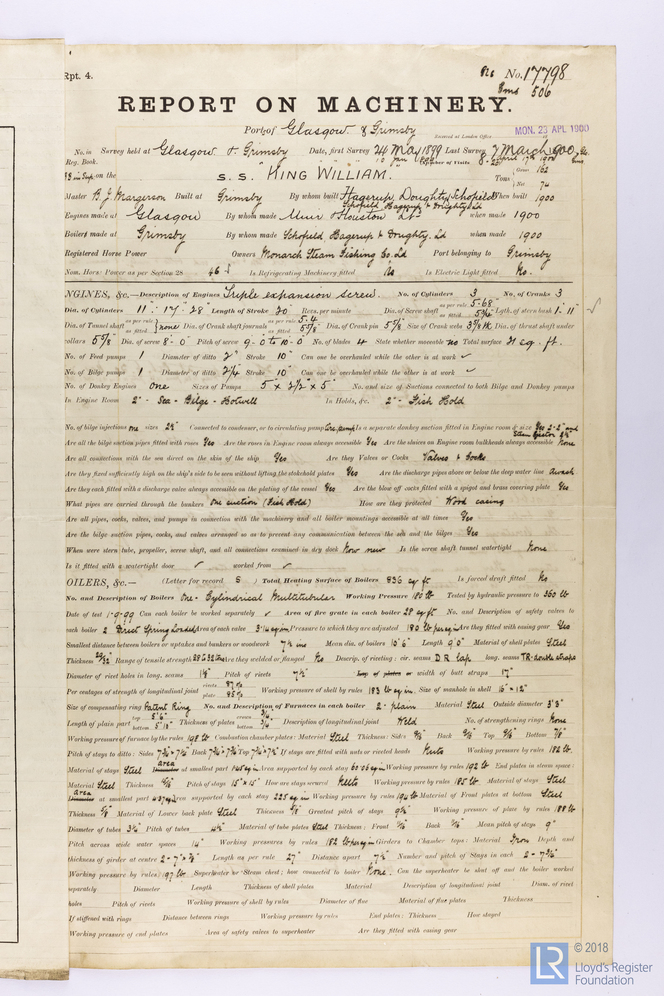 Rpt. 4.
No. 17798
506
REPORT ON MACHINERY.
Port of Glasgow & Grimsby
Received at London Office
MON. 23 APL 1900
No. in Survey held at Glasgow & Grimsby Date, first Survey 24 May 1899 Last Survey 7 March 1900
Reg. Book.
on the S.S. KING WILLIAM. Tons Gross 162
Net 74
Master B. J. Margerson Built at Grimsby By whom built Hagerup, Doughty, Schofield When built 1900
Schofield Hagerup & Doughty Ld
Engines made at Glasgow By whom made Muir & Houston Ld when made 1900
Boilers made at Grimsby By whom made Schofield Hagerup & Doughty. Ld when made 1900
Registered Horse Power Owners Monarch Steam Fishing Co. Ld Port belonging to Grimsby
Nom. Horse Power as per Section 28 46 Is Refrigerating Machinery fitted No Is Electric Light fitted No.
NGINES, &c.—Description of Engines Triple expansion screw. No. of Cylinders 3 No. of Cranks 3
Dia. of Cylinders 11" 17" 28" Length of Stroke 20" Revs. per minute Dia. of Screw shaft as per rule 5.68 Lgth. of stern bush 1' 11"
Dia. of Tunnel shaft as per rule as fitted none Dia. of Crank shaft journals as per rule 5.4 as fitted 5 7/8 Dia. of Crank pin 5 7/8 Size of Crank webs Dia. of thrust shaft under
collars 5 7/8 Dia. of screw 8-0 Pitch of screw 9-0 to 10-0 No. of blades 4 State whether moveable no Total surface 21 sq. ft.
No. of Feed pumps 1 Diameter of ditto 2" Stroke 10" Can one be overhauled while the other is at work ✓
No. of Bilge pumps 1 Diameter of ditto 2 1/4 Stroke 10" Can one be overhauled while the other is at work ✓
No. of Donkey Engines One Sizes of Pumps 5" x 3 1/2" x 5" No. and size of Suctions connected to both Bilge and Donkey pumps
In Engine Room 2" - Sea - Bilge - Hotwell In Holds, &c. 2" - Fish Hold
No. of bilge injections one sizes 2 1/2 Connected to condenser, or to circulating pump Is a separate donkey suction fitted in Engine room & size Yes 2-2" and
Steam Ejector
Are all the bilge suction pipes fitted with roses Yes Are the roses in Engine room always accessible Yes Are the sluices on Engine room bulkheads always accessible none
Are all connections with the sea direct on the skin of the ship Yes Are they Valves or Cocks Valves & Cocks
Are they fixed sufficiently high on the ship's side to be seen without lifting the stokehold plates Yes Are the discharge pipes above or below the deep water line awash
Are they each fitted with a discharge valve always accessible on the plating of the vessel Yes Are the blow off cocks fitted with a spigot and brass covering plate Yes
What pipes are carried through the bunkers One suction (Fish Hold) How are they protected Wood casing
Are all pipes, cocks, valves, and pumps in connection with the machinery and all boiler mountings accessible at all times Yes
Are the bilge suction pipes, cocks, and valves arranged so as to prevent any communication between the sea and the bilges Yes
When were stern tube, propeller, screw shaft, and all connections examined in dry dock Now new Is the screw shaft tunnel watertight None
Is it fitted with a watertight door ✓ worked from ✓
OILERS, &c.— (Letter for record S) Total Heating Surface of Boilers 836 sq ft Is forced draft fitted No
No. and Description of Boilers One - Cylindrical Multitubular Working Pressure 180 lb Tested by hydraulic pressure to 360 lb
Date of test 1-9-99 Can each boiler be worked separately ✓ Area of fire grate in each boiler 28 sq ft No. and Description of safety valves to
each boiler 2 Direct Spring loaded Area of each valve 3.14 sq in Pressure to which they are adjusted 180 lb per sq in Are they fitted with easing gear Yes
Smallest distance between boilers or uptakes and bunkers or woodwork 7 1/2 ins Mean dia. of boilers 10'6" Length 9'0" Material of shell plates Steel
Thickness 29/32 Range of tensile strength 28 to 32 tons Are they welded or flanged No Descrip. of riveting : cir. seams D R lap long. seams TR double straps
Diameter of rivet holes in long. seams Pitch of rivets 7 1/2" width of butt straps 17"
Per centages of strength of longitudinal joint rivets 87% plate 85% Working pressure of shell by rules 183 lb sq in. Size of manhole in shell 16" x 12"
Size of compensating ring Patent Ring No. and Description of Furnaces in each boiler 2 - plain Material Steel Outside diameter 3'3"
Length of plain part top 5'6" bottom 5'10" Thickness of plates crown 3/4 bottom 3/4 Description of longitudinal joint Weld No. of strengthening rings None
Working pressure of furnace by the rules 198 lb Combustion chamber plates : Material Steel Thickness : Sides 9/16 Back 9/16 Top 9/16 Bottom 7/8
Pitch of stays to ditto : Sides 7 3/4 x 7 3/4 Back 7 3/4 x 7 3/4 Top 7 3/4 x 7 3/4 If stays are fitted with nuts or riveted heads Nuts Working pressure by rules 182 lb.
Material of stays Steel area at smallest part Area supported by each stay 60.06 sq in Working pressure by rules 192 lb End plates in steam space :
Material Steel Thickness Pitch of stays 15" x 15" How are stays secured Nuts Working pressure by rules 185 lb. Material of stays Steel
Area at smallest part Area supported by each stay 225 sq in Working pressure by rules Material of Front plates at bottom Steel
Thickness 5/8 Material of Lower back plate Steel Thickness 5/8 Greatest pitch of stays 9 1/2 Working pressure of plate by rules 188 lb
Diameter of tubes 3 1/4 Pitch of tubes 4 1/2 Material of tube plates Steel Thickness : Front Back Mean pitch of stays 9"
Pitch across wide water spaces 14" Working pressures by rules 182 lb per sq in Girders to Chamber tops : Material Iron Depth and
thickness of girder at centre Length as per rule 27" Distance apart 7 3/4 Number and pitch of Stays in each 2 - 7 3/4"
Working pressure by rules 197 lb. Superheater or Steam chest; how connected to boiler None. Can the superheater be shut off and the boiler worked
separately Diameter Length Thickness of shell plates Material Description of longitudinal joint Diam. of rivet
holes Pitch of rivets Working pressure of shell by rules Diameter of flue Material of flue plates Thickness
If stiffened with rings Distance between rings Working pressure by rules End plates : Thickness How stayed
Working pressure of end plates Area of safety valves to superheater Are they fitted with easing gear
LR
© 2018
Lloyd's Register
Foundation